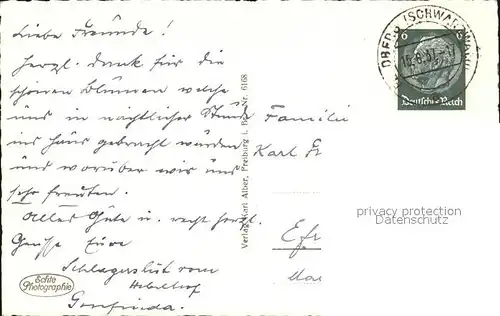 Liebe Freunde!
Herzl. Dank für die
schönen Blumen welche
uns in nächtlicher Stunde
ins Haus gebracht wurden
und worüber wir uns
sehr freuten.
Alles Gute u. recht herzl.
Grüsse Eure
vom
Echte
Photographie
Verlag Karl Alber, Freiburg i. Br. Nr. 6168
(SCHWARZWALD)
6
6
Deutsches Reich
Familie
Karl
privacy protection
Datenschutz